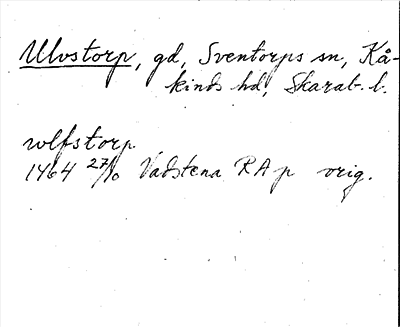 Ulvstorp, gd, Sventorps sn, Kå-
kinds hd, Skarab. l.
wlfstorp
1464 27/10 Vadstena RAp orig.